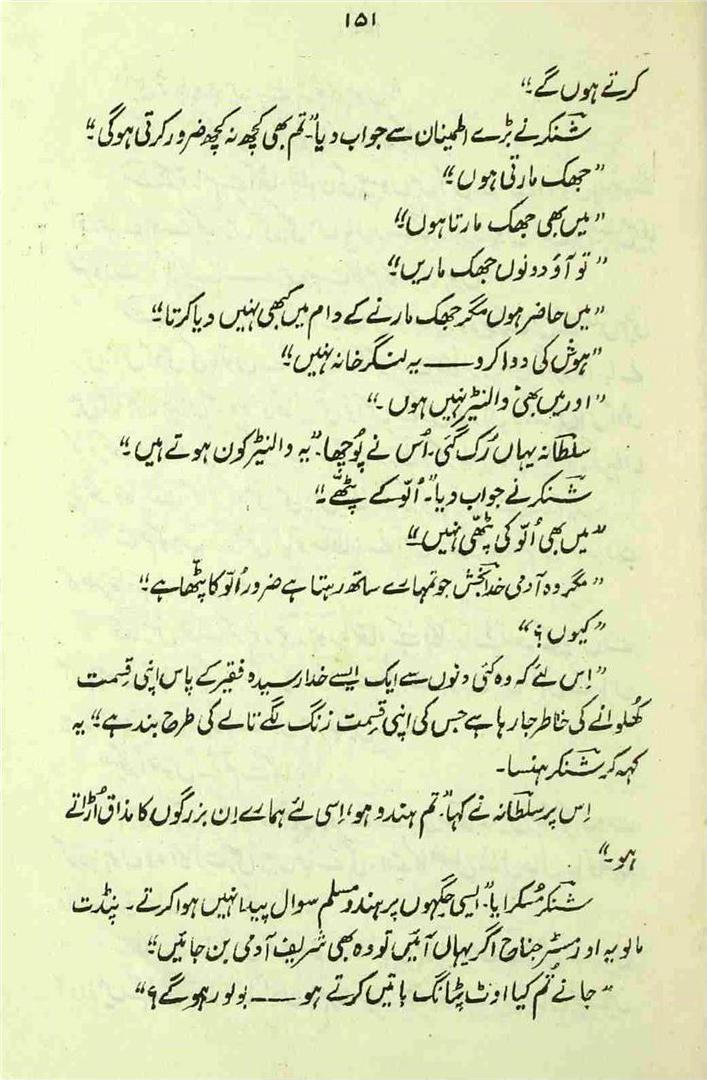 ۱۵۱
کرتے ہوں گے۔“
شنکر نے بڑے اطمینان سے جواب دیا۔ ”تم بھی کچھ نہ کچھ ضرور کرتی ہوگی۔“
”جھک مارتی ہوں۔“
”میں بھی جھک مارتا ہوں۔“
”تو آؤ دونوں جھک ماریں۔“
”میں حاضر ہوں مگر جھک مارنے کے دام میں کبھی نہیں دیا کرتا۔“
”ہوش کی دوا کرو ــــ یہ لنگر خانہ نہیں۔“
”اور میں بھی والنٹیر نہیں ہوں۔“
سلطانہ یہاں رُک گئی۔ اُس نے پُوچھا۔ ”یہ والنٹیر کون ہوتے ہیں۔“
شنکر نے جواب دیا۔ ”اُلّو کے پٹھے۔“
”میں بھی اُلّو کی پٹھی نہیں۔“
”مگر وہ آدمی خدا بخش جو تمہارے ساتھ رہتا ہے ضرور اُلّو کا پٹھا ہے۔“
”کیوں؟“
”اِس لئے کہ وہ کئی دنوں سے ایک ایسے خدا رسیدہ فقیر کے پاس اپنی قسمت
کھلوانے کی خاطر جا رہا ہے جس کی اپنی قسمت زنگ لگے تالے کی طرح بند ہے۔“ یہ
کہہ کر شنکر ہنسا۔
اِس پر سلطانہ نے کہا۔ ”تم ہندو ہو، اِسی لئے ہمارے اِن بزرگوں کا مذاق اُڑاتے
ہو۔“
شنکر مُسکرایا۔ ”ایسی جگہوں پر ہندو مسلم سوال پیدا نہیں ہوا کرتے۔ پنڈت
مالویہ اور مسٹر جناح اگر یہاں آئیں تو وہ بھی شریف آدمی بن جائیں۔“
”جانے تُم کیا اوٹ پٹانگ باتیں کرتے ہو ــــ بولو رہو گے؟“